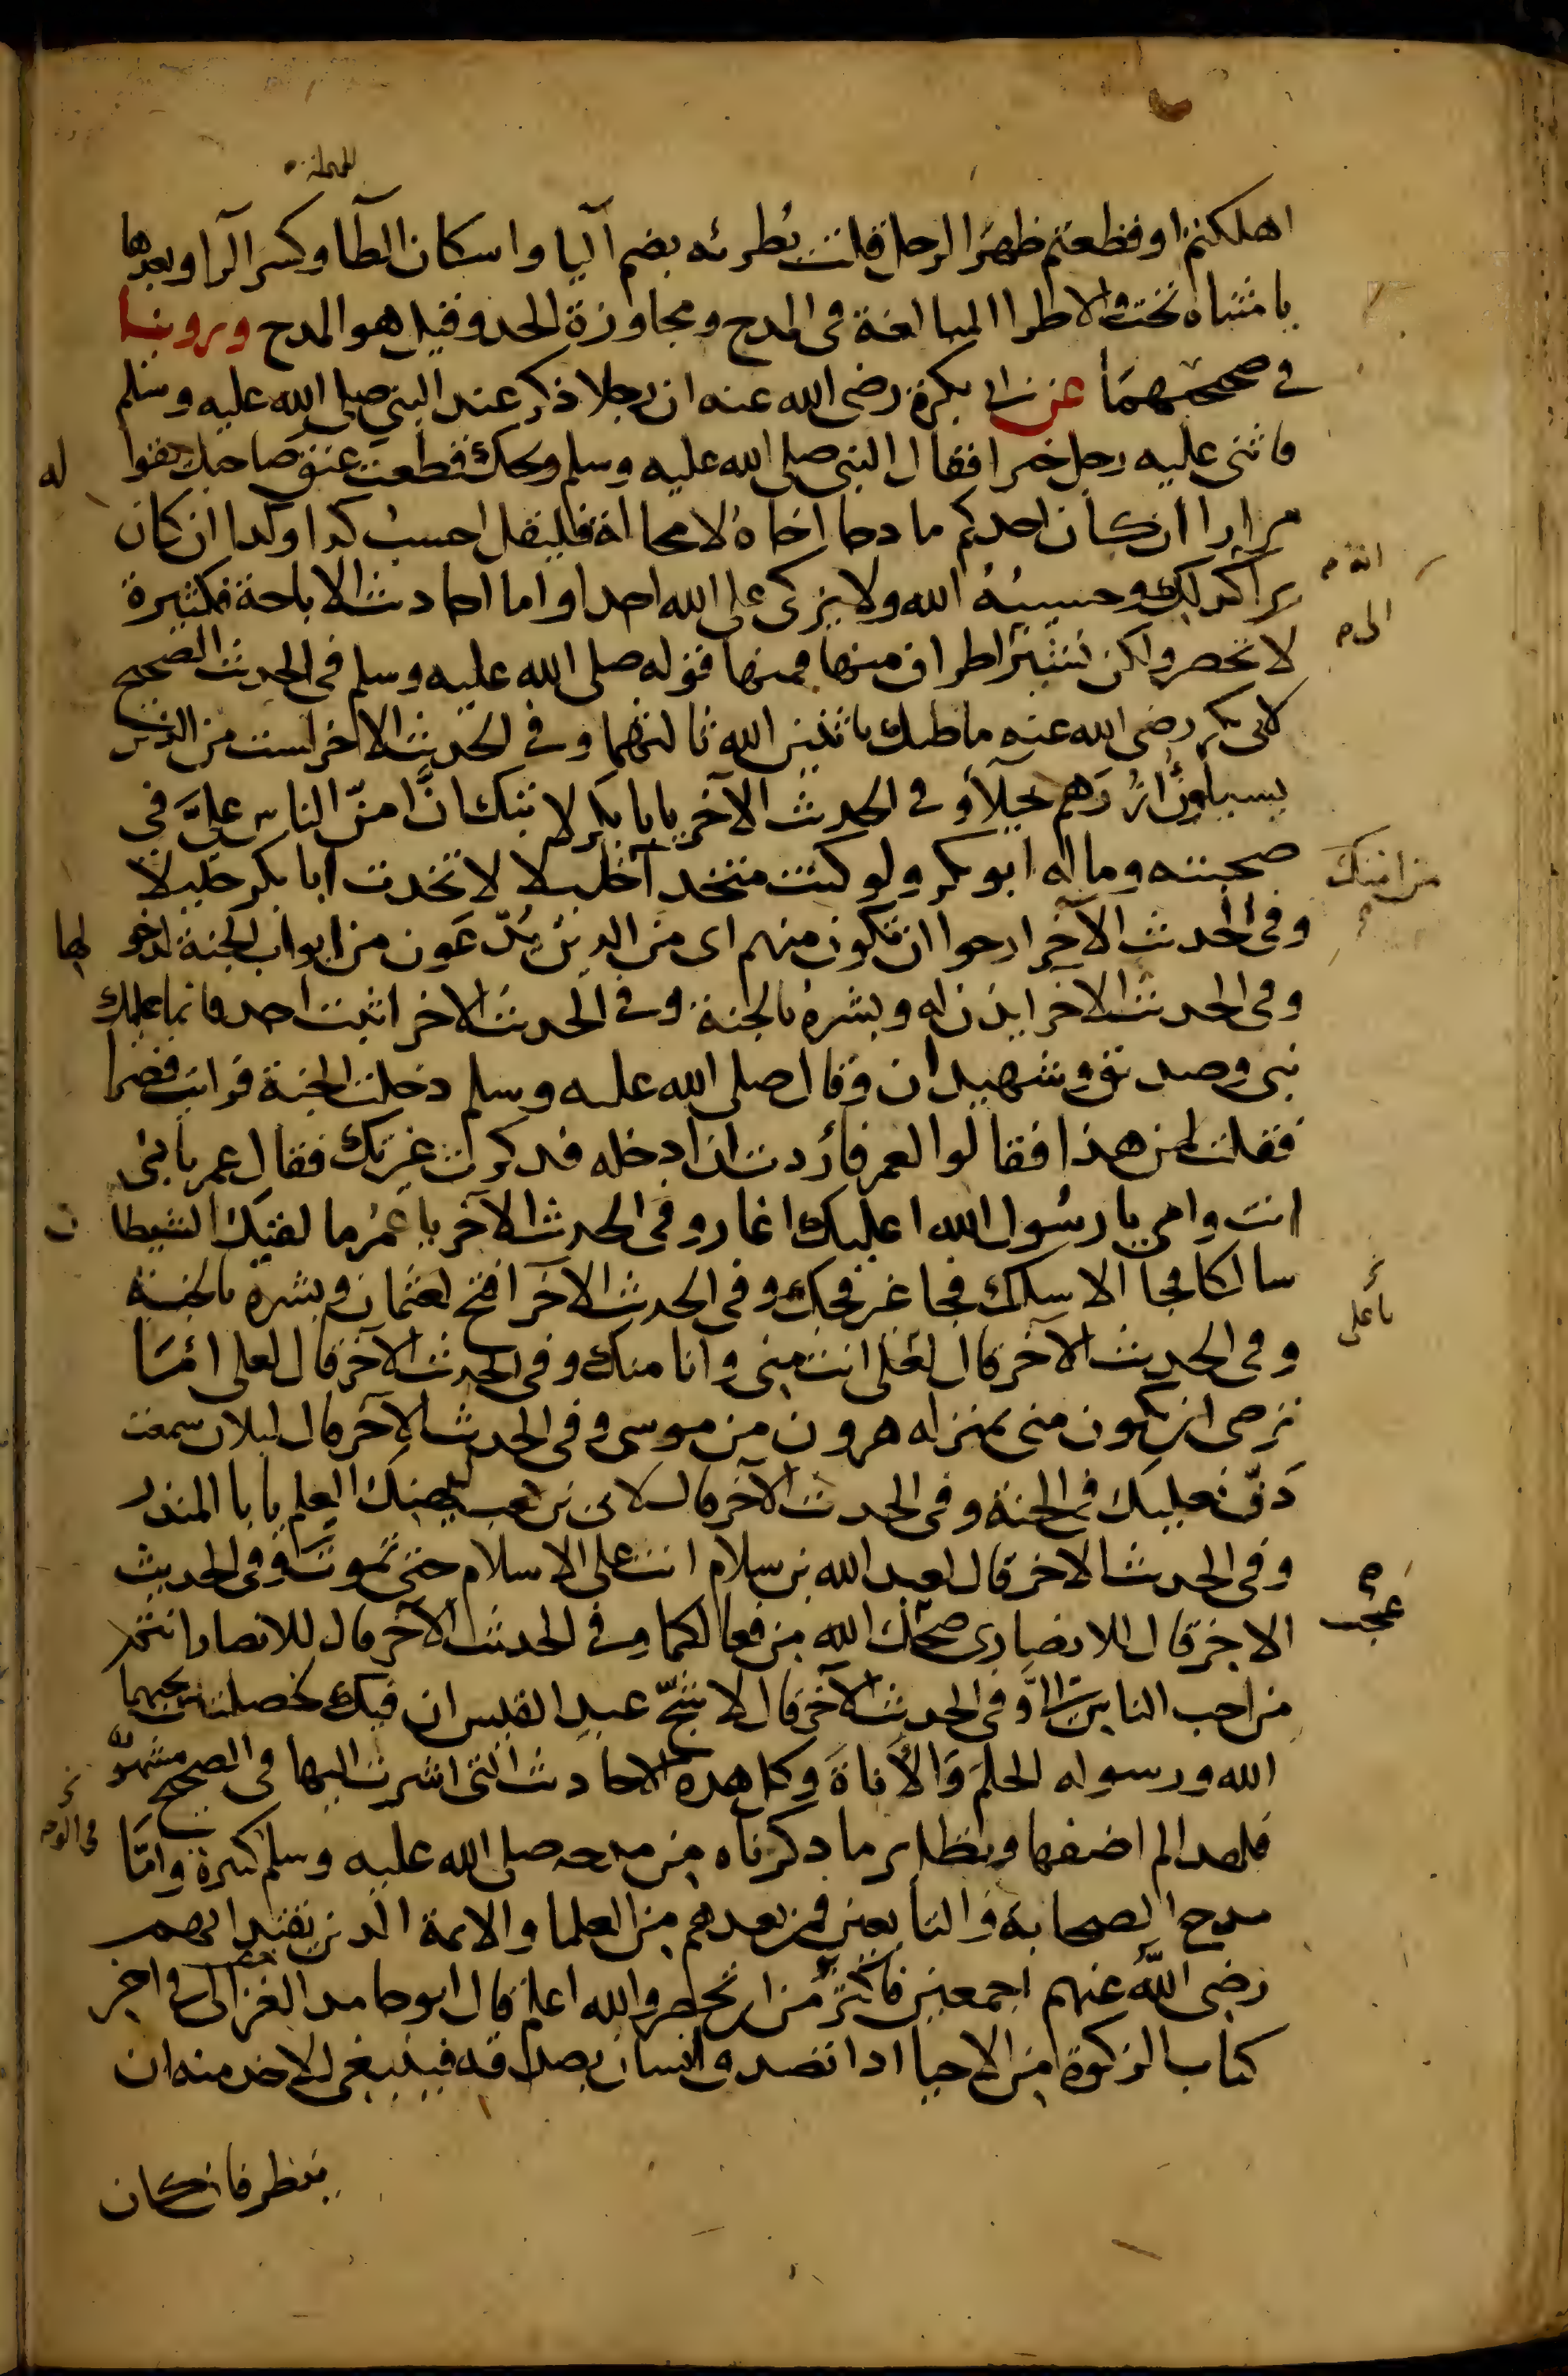 المهملة
اهلكتم او قطعتم ظهر الرجل قلت يُطرئه بضم اليا واسكان الطآ وكسر الرا وبعدها
يا مثناه تحت والاطرا المبالغة في المدح ومجاوزة الحد وقيل هو المدح وروينا
في صحيحهمَا عن ابي بكرة رضى الله عنه ان رجلا ذكر عند النبي صلى الله عليه وسلم
فاثنى عليه رجل خيرا فقال النبي صلى الله عليه وسلم ويحك قطعت عنق صاحبك يقوا له
مرارا ان كان احدكم مادحا اخاهُ لا محالة فليقل احسب كذا وكذا ان كان
يرا انه كذلك وحسيبُهُ الله ولا يزكى على الله احدا واما احاديث الاباحة فكثيرة
لا تحصر ولكن نشير الى اطراف منها فمنها قوله صلى الله عليه وسلم في الحديث الصحيح
لابي بكر رضى الله عنه ما ظنك باثنين الله ثالثهما وفي الحديث الاخر لست من الذين
يسبلون اُزُرَهم خيلاً وفي الحديث الآخر يابا بكر لا تبك انَّ امنّ الناس عليَّ في
صحبته وماله ابو بكر ولو كنت متخذا خليلا لاتخذت ابا بكر خليلا
من امتك
وفي الحديث الآخر ارجوا ان تكون منهم اى من الذين يُدّعَون من ابواب الجنة لدخولها
وفي الحديث الاخر ايذن له وبشرهُ بالجنة وفي الحديث الاخر اثبت احد فانما عليك
نبي وصديق وشهيدان وقال صلى الله عليه وسلم دخلت الجنة فرايت قصرا
فقلت لمن هذا فقالوا لعمر فأردت ان ادخله فذكرت غيرتك فقال عمر بابي
انت وامي يا رسُول الله اعليك اغار وفي الحديث الآخر يا عمُر ما لقيك الشيطان
سالكا فجا الا سلك فجا غير فجك وفي الحديث الآخر افتح لعثمان وبشره بالجنة
وفي الحديث الآخر قال لعلى انت مني وانا منك وفي الحديث الآخر قال لعلى امَا
يا على
ترضى ان تكون منى بمنزله هرون من موسى وفي الحديث الآخر قال لبلال سمعت
دَفّ نعليك في الجنة وفي الحديث الآخر قال لابي بن كعب ليهنك العلم يابا المنذر
وفي الحديث الاخر قال لعبد الله بن سلام انت على الاسلام حتى تموت وفي الحديث
الاخر قال للانصارى ضحك الله من فعالكما وفي الحديث الآخر قال للانصار انتم
عجب
من احب الناس الىَّ وفي الحديث الآخر قال لاشجّ عبد القيس ان فيك خصلتين يحبهما
الله ورسوله الحلمَ وَالأناةَ وكل هذه الاحاديث التى اشرت اليها في الصحيح مشهورة
فلهذا لم اضفها ونظاير ما ذكرناه من مدحه صلى الله عليه وسلم كثيرة وامَّا
مدح الصحابة والتابعين فمن بعدهم من العلما والايمة الذين يقتدا بهم
رضى الله عنهم اجمعين فاكثر من ان تحصر والله اعلم قال ابو حامد الغزالى في اخر
كتاب الزكوة من الاحيا اذا تصدق انسان بصدقه فينبغى للاخذ منه ان
ينظر فان كان